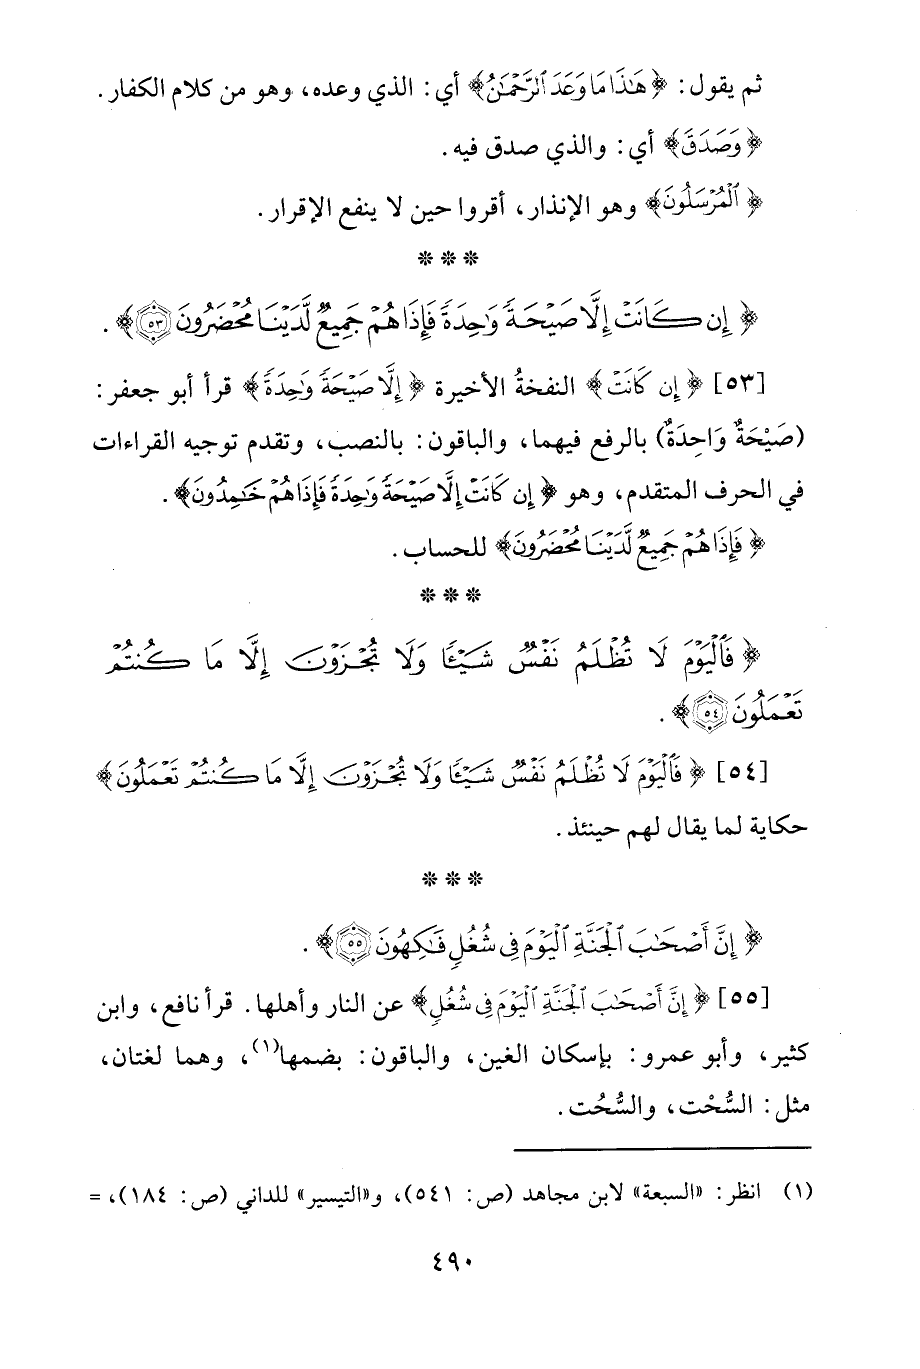 ثم يقول: ﴿هَٰذَا مَا وَعَدَ ٱلرَّحۡمَٰنُ﴾ أي: الذي وعده، وهو من كلام الكفار.
﴿وَصَدَقَ﴾ أي: والذي صدق فيه.
﴿ٱلۡمُرۡسَلُونَ﴾ وهو الإنذار، أقروا حين لا ينفع الإقرار.
* * *
﴿إِن كَانَتۡ إِلَّا صَيۡحَةٗ وَٰحِدَةٗ فَإِذَا هُمۡ جَمِيعٞ لَّدَيۡنَا مُحۡضَرُونَ ٥٣﴾.
[٥٣] ﴿إِن كَانَتۡ﴾ النفخةُ الأخيرة ﴿إِلَّا صَيۡحَةٗ وَٰحِدَةٗ﴾ قرأ أبو جعفر:
(صَيْحَةٌ وَاحِدَةٌ) بالرفع فيهما، والباقون: بالنصب، وتقدم توجيه القراءات
في الحرف المتقدم، وهو ﴿إِن كَانَتۡ إِلَّا صَيۡحَةٗ وَٰحِدَةٗ فَإِذَا هُمۡ خَٰمِدُونَ﴾.
﴿فَإِذَا هُمۡ جَمِيعٞ لَّدَيۡنَا مُحۡضَرُونَ﴾ للحساب.
* * *
﴿فَٱلۡيَوۡمَ لَا تُظۡلَمُ نَفۡسٞ شَيۡـٔٗا وَلَا تُجۡزَوۡنَ إِلَّا مَا كُنتُمۡ
تَعۡمَلُونَ ٥٤﴾.
[٥٤] ﴿فَٱلۡيَوۡمَ لَا تُظۡلَمُ نَفۡسٞ شَيۡـٔٗا وَلَا تُجۡزَوۡنَ إِلَّا مَا كُنتُمۡ تَعۡمَلُونَ﴾
حكاية لما يقال لهم حينئذ.
* * *
﴿إِنَّ أَصۡحَٰبَ ٱلۡجَنَّةِ ٱلۡيَوۡمَ فِي شُغُلٖ فَٰكِهُونَ ٥٥﴾.
[٥٥] ﴿إِنَّ أَصۡحَٰبَ ٱلۡجَنَّةِ ٱلۡيَوۡمَ فِي شُغُلٖ﴾ عن النار وأهلها. قرأ نافع، وابن
كثير، وأبو عمرو: بإسكان الغين، والباقون: بضمها(١)، وهما لغتان،
مثل: السُّحْت، والسُّحُت.
(١) انظر: «السبعة» لابن مجاهد (ص: ٥٤١)، و«التيسير» للداني (ص: ١٨٤)، =
٤٩٠